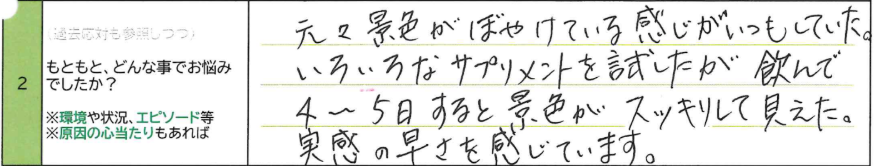 2
(過去応対も参照しつつ)
もともと、どんな事でお悩み
でしたか?
※環境や状況、エピソード等
※原因の心当たりもあれば
元々景色がぼやけている感じがいつもしていた。
いろいろなサプリメントを試したが飲んで
4〜5日すると景色がスッキリして見えた。
実感の早さを感じています。